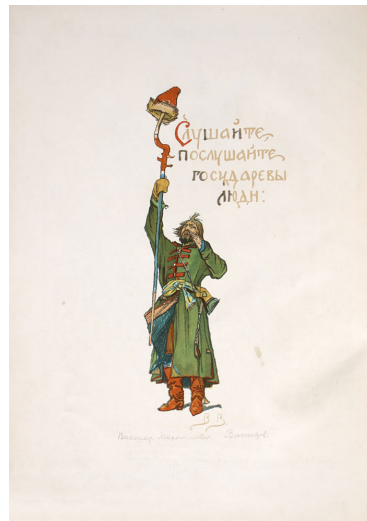 Слушайте,
послушайте
государевы
люди:
В В
Виктор Михайлович Васнецов